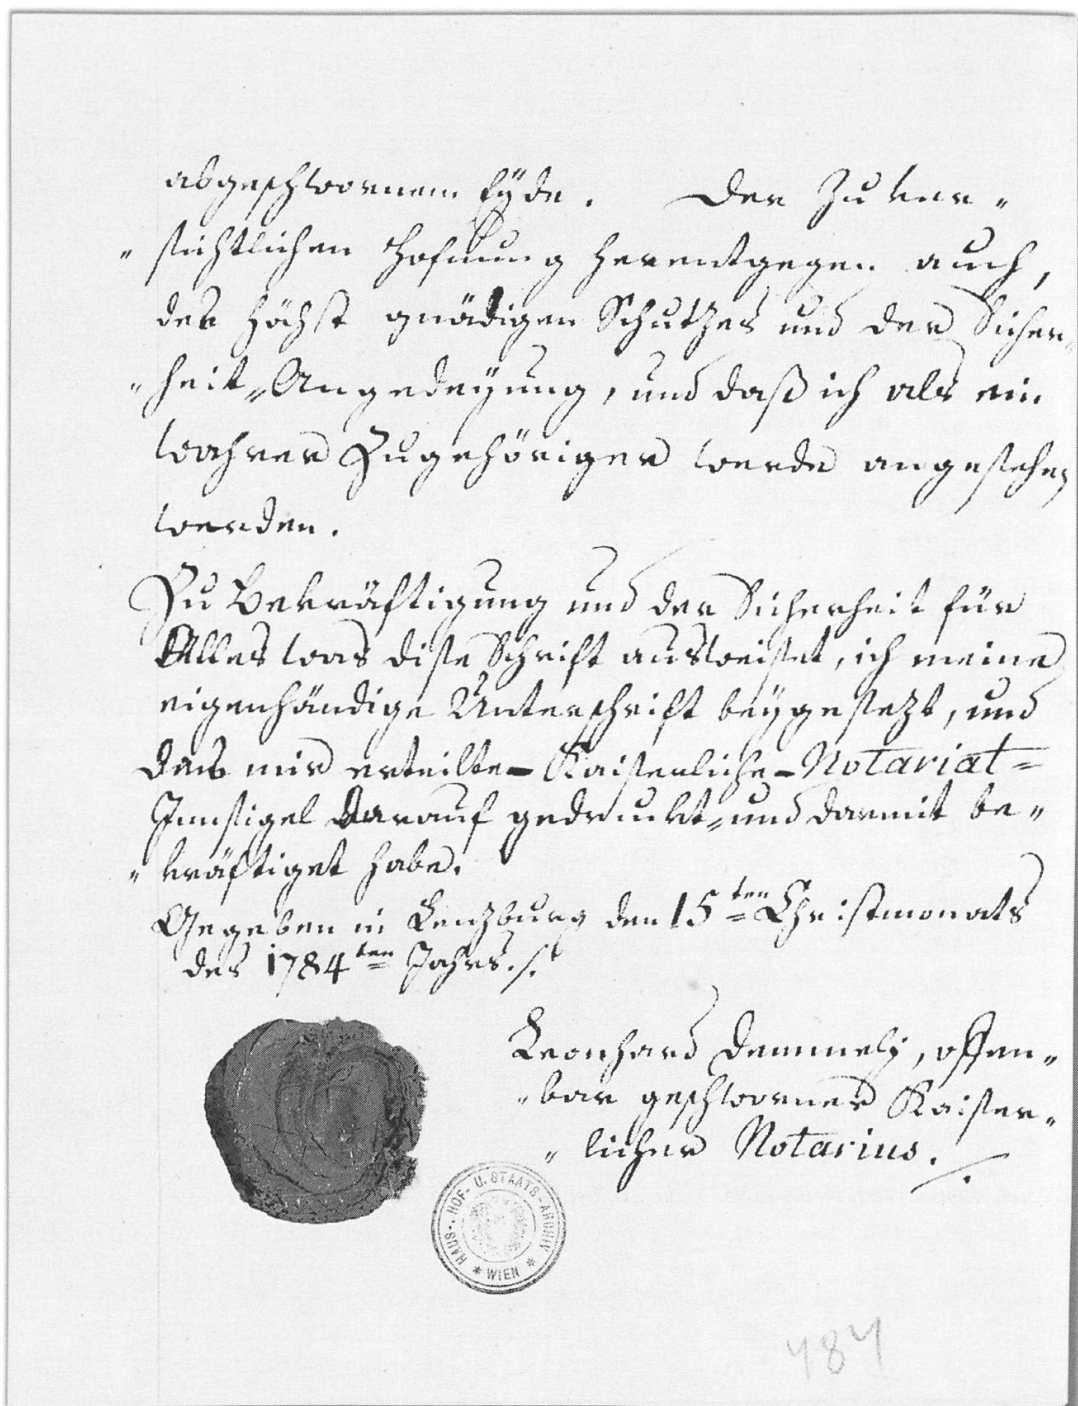 abgeschwornem Eyde. Der Zuver„
„sichtlichen Hofnung herentgegen auch,
des höchst gnädigen Schutzes und der Sicher„
„heit„Angedeyung, und daß ich als ein
wahrer Zugehöriger werde angesehen
werden.
Zu Bekräftigung und der Sicherheit für
Alles was dise Schrift ausweiset, ich meine
eigenhändige Unterschrift beygesezt, und
das mir erteilte-Kaiserliche-Notariat=
Innsigel darauf gedruckt„und darmit be„
„kräftiget habe.
Gegeben in Lenzburg den 15ten Christmonats
des 1784ten Jahrs./.
Leonhard Demmely, offen„
„bar geschworner Kaiser„
„licher Notarius./.
HAUS-, HOF- U. STAATS-ARCHIV
* WIEN *
484